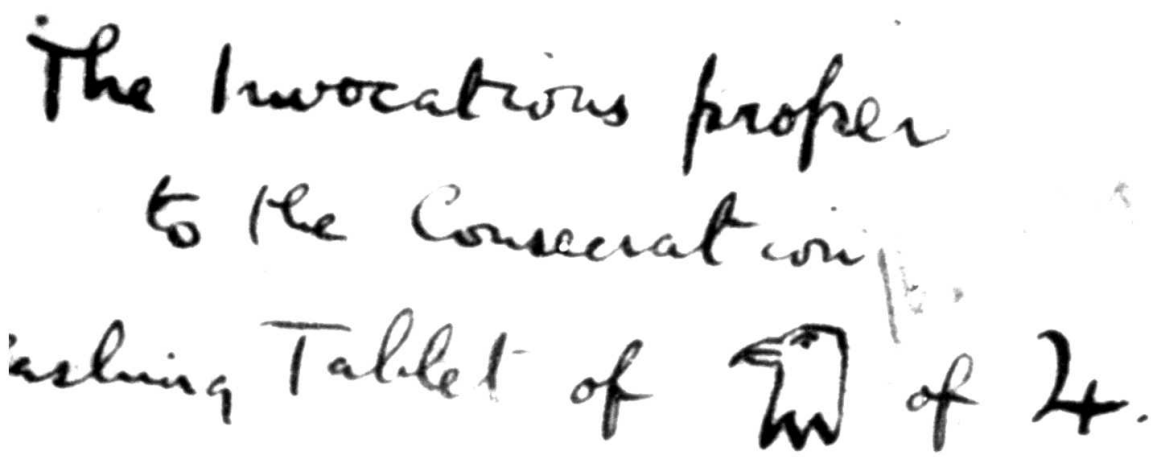 The Invocations proper
to the Consecration
ashing Tablet of of ♃.